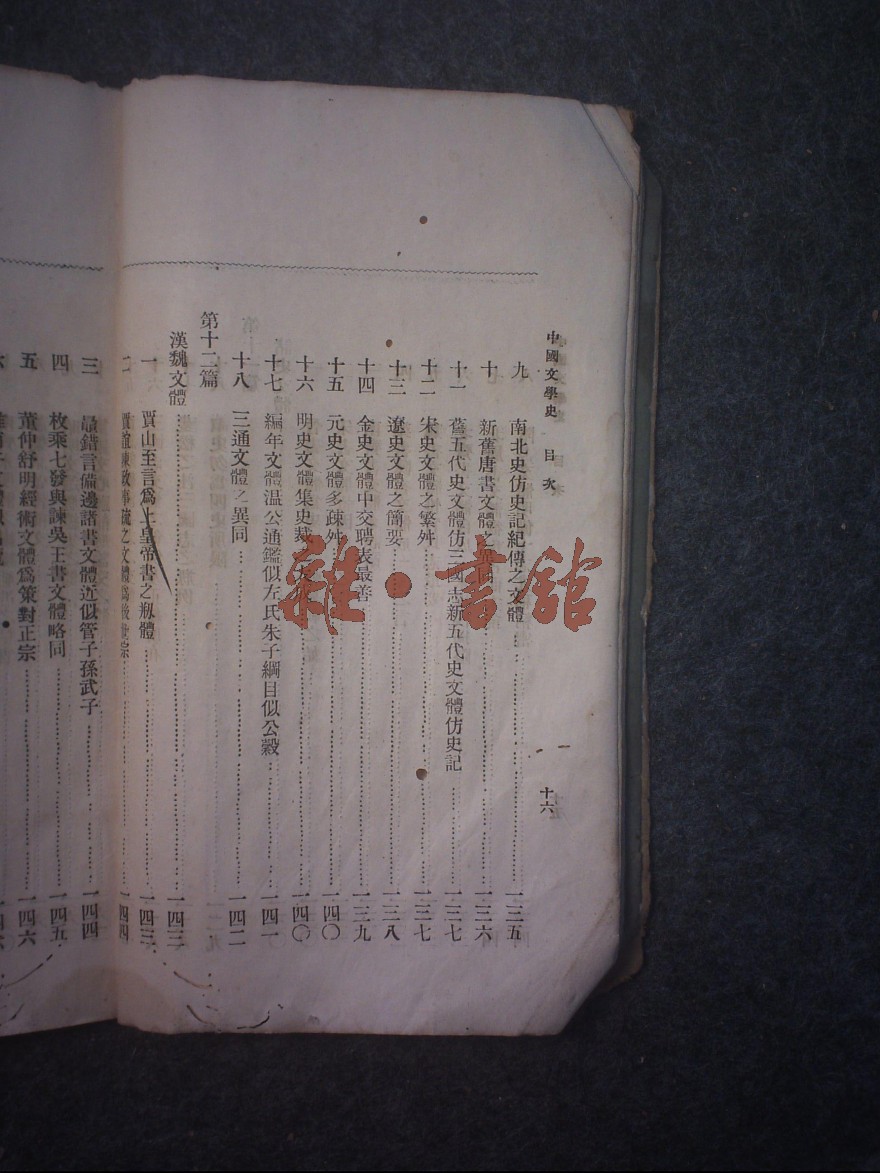 中國文學史 目次 十六
九 南北史仿史記紀傳之文體 一三五
十 新舊唐書文體之異同 一三六
十一 舊五代史文體仿三國志新五代史文體仿史記 一三七
十二 宋史文體之繁舛 一三七
十三 遼史文體之簡要 一三八
十四 金史文體中交聘表最善 一三九
十五 元史文體多疎舛 一四〇
十六 明史文體集史裁 一四〇
十七 編年文體温公通鑑似左氏朱子綱目似公穀 一四一
十八 三通文體之異同 一四二
第十二篇
漢魏文體 一四三
一 賈山至言爲上皇帝書之剏體 一四三
二 賈誼陳政事疏之文體爲後世宗 一四四
三 鼂錯言備邊諸書文體近似管子孫武子 一四四
四 枚乘七發與諫吳王書文體略同 一四五
五 董仲舒明經術文體爲策對正宗 一四六
六
雜·書館